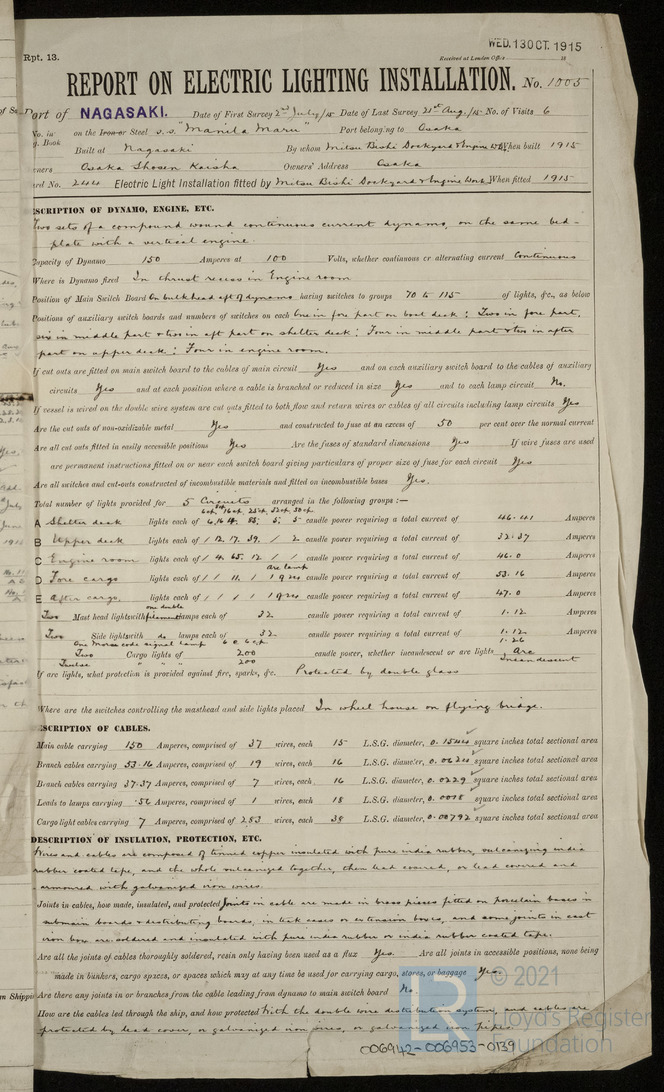 WED. 13 OCT. 1915
Rpt. 13.
Received at London Office
REPORT ON ELECTRIC LIGHTING INSTALLATION. No. 1005
Port of NAGASAKI. Date of First Survey 2nd July/15 Date of Last Survey 21st Aug./15 No. of Visits 6
No. in on the Iron or Steel s.s. "Manila Maru" Port belonging to Osaka
Book Built at Nagasaki By whom Mitsu Bishi Dockyard & Engine Works When built 1915
Owners Osaka Shosen Kaisha Owners' Address Osaka
Card No. 244 Electric Light Installation fitted by Mitsu Bishi Dockyard & Engine Works When fitted 1915
DESCRIPTION OF DYNAMO, ENGINE, ETC.
Two sets of a compound wound continuous current dynamo, on the same bed-
plate with a vertical engine.
Capacity of Dynamo 150 Amperes at 100 Volts, whether continuous or alternating current Continuous
Where is Dynamo fixed In thrust recess in Engine room
Position of Main Switch Board On bulkhead aft of dynamo having switches to groups 70 to 115 of lights, &c., as below
Positions of auxiliary switch boards and numbers of switches on each One in fore part on boat deck; Two in fore part,
six in middle part & two in aft part on shelter deck; Four in middle part & two in after
part on upper deck; Four in engine room.
If cut outs are fitted on main switch board to the cables of main circuit Yes and on each auxiliary switch board to the cables of auxiliary
circuits Yes and at each position where a cable is branched or reduced in size Yes and to each lamp circuit No.
If vessel is wired on the double wire system are cut outs fitted to both flow and return wires or cables of all circuits including lamp circuits Yes
Are the cut outs of non-oxidizable metal Yes and constructed to fuse at an excess of 50 per cent over the normal current
Are all cut outs fitted in easily accessible positions Yes Are the fuses of standard dimensions Yes If wire fuses are used
are permanent instructions fitted on or near each switch board giving particulars of proper size of fuse for each circuit Yes
Are all switches and cut-outs constructed of incombustible materials and fitted on incombustible bases Yes.
Total number of lights provided for 5 Circuits arranged in the following groups :—
A Shelter deck lights each of candle power requiring a total current of 46.41 Amperes
B Upper deck lights each of / 12. 17. 39. / 2 candle power requiring a total current of 37.37 Amperes
C Engine room lights each of / 4. 65. 12 / / candle power requiring a total current of 46.0 Amperes
arc lamp
D Fore cargo lights each of / / 11. / candle power requiring a total current of 53.16 Amperes
E After cargo. lights each of candle power requiring a total current of 47.0 Amperes
one double
Two Mast head lights with filament lamps each of 32 candle power requiring a total current of 1.12 Amperes
Two Side lights with do lamps each of 32 candle power requiring a total current of 1.12 Amperes
One Morse code signal lamp 6 @ 6 c.p. 1.26
Two Cargo lights of 200 candle power, whether incandescent or arc lights Arc
Twelve " " " 200 Incandescent
If arc lights, what protection is provided against fire, sparks, &c. Protected by double glass
Where are the switches controlling the masthead and side lights placed In wheel house on flying bridge.
DESCRIPTION OF CABLES.
Main cable carrying 150 Amperes, comprised of 37 wires, each 15 L.S.G. diameter, 0.1544 square inches total sectional area
Branch cables carrying 53.16 Amperes, comprised of 19 wires, each 16 L.S.G. diameter, 0.0620 square inches total sectional area
Branch cables carrying 37.37 Amperes, comprised of 7 wires, each 16 L.S.G. diameter, 0.0229 square inches total sectional area
Leads to lamps carrying .56 Amperes, comprised of 1 wires, each 18 L.S.G. diameter, 0.0018 square inches total sectional area
Cargo light cables carrying 7 Amperes, comprised of 283 wires, each 38 L.S.G. diameter, 0.00792 square inches total sectional area
DESCRIPTION OF INSULATION, PROTECTION, ETC.
Wires and cables are composed of tinned copper insulated with pure india rubber, vulcanizing india
rubber coated tape, and the whole vulcanized together, then lead covered, or lead covered and
armoured with galvanized iron wires.
Joints in cables, how made, insulated, and protected Joints in cable are made in brass pieces fitted on porcelain bases in
submain boards & distributing boards, in teak cases or extension boxes, and some joints in cast
iron box are soldered and insulated with pure india rubber or india rubber coated tape.
Are all the joints of cables thoroughly soldered, resin only having been used as a flux Yes. Are all joints in accessible positions, none being
made in bunkers, cargo spaces, or spaces which may at any time be used for carrying cargo, stores, or baggage Yes.
Are there any joints in or branches from the cable leading from dynamo to main switch board No.
How are the cables led through the ship, and how protected With the double wire distribution system, and cables are
protected by lead cover, or galvanized iron wires, or galvanized iron pipes.
© 2021
Lloyd's Register
Foundation
006942-006953-0139